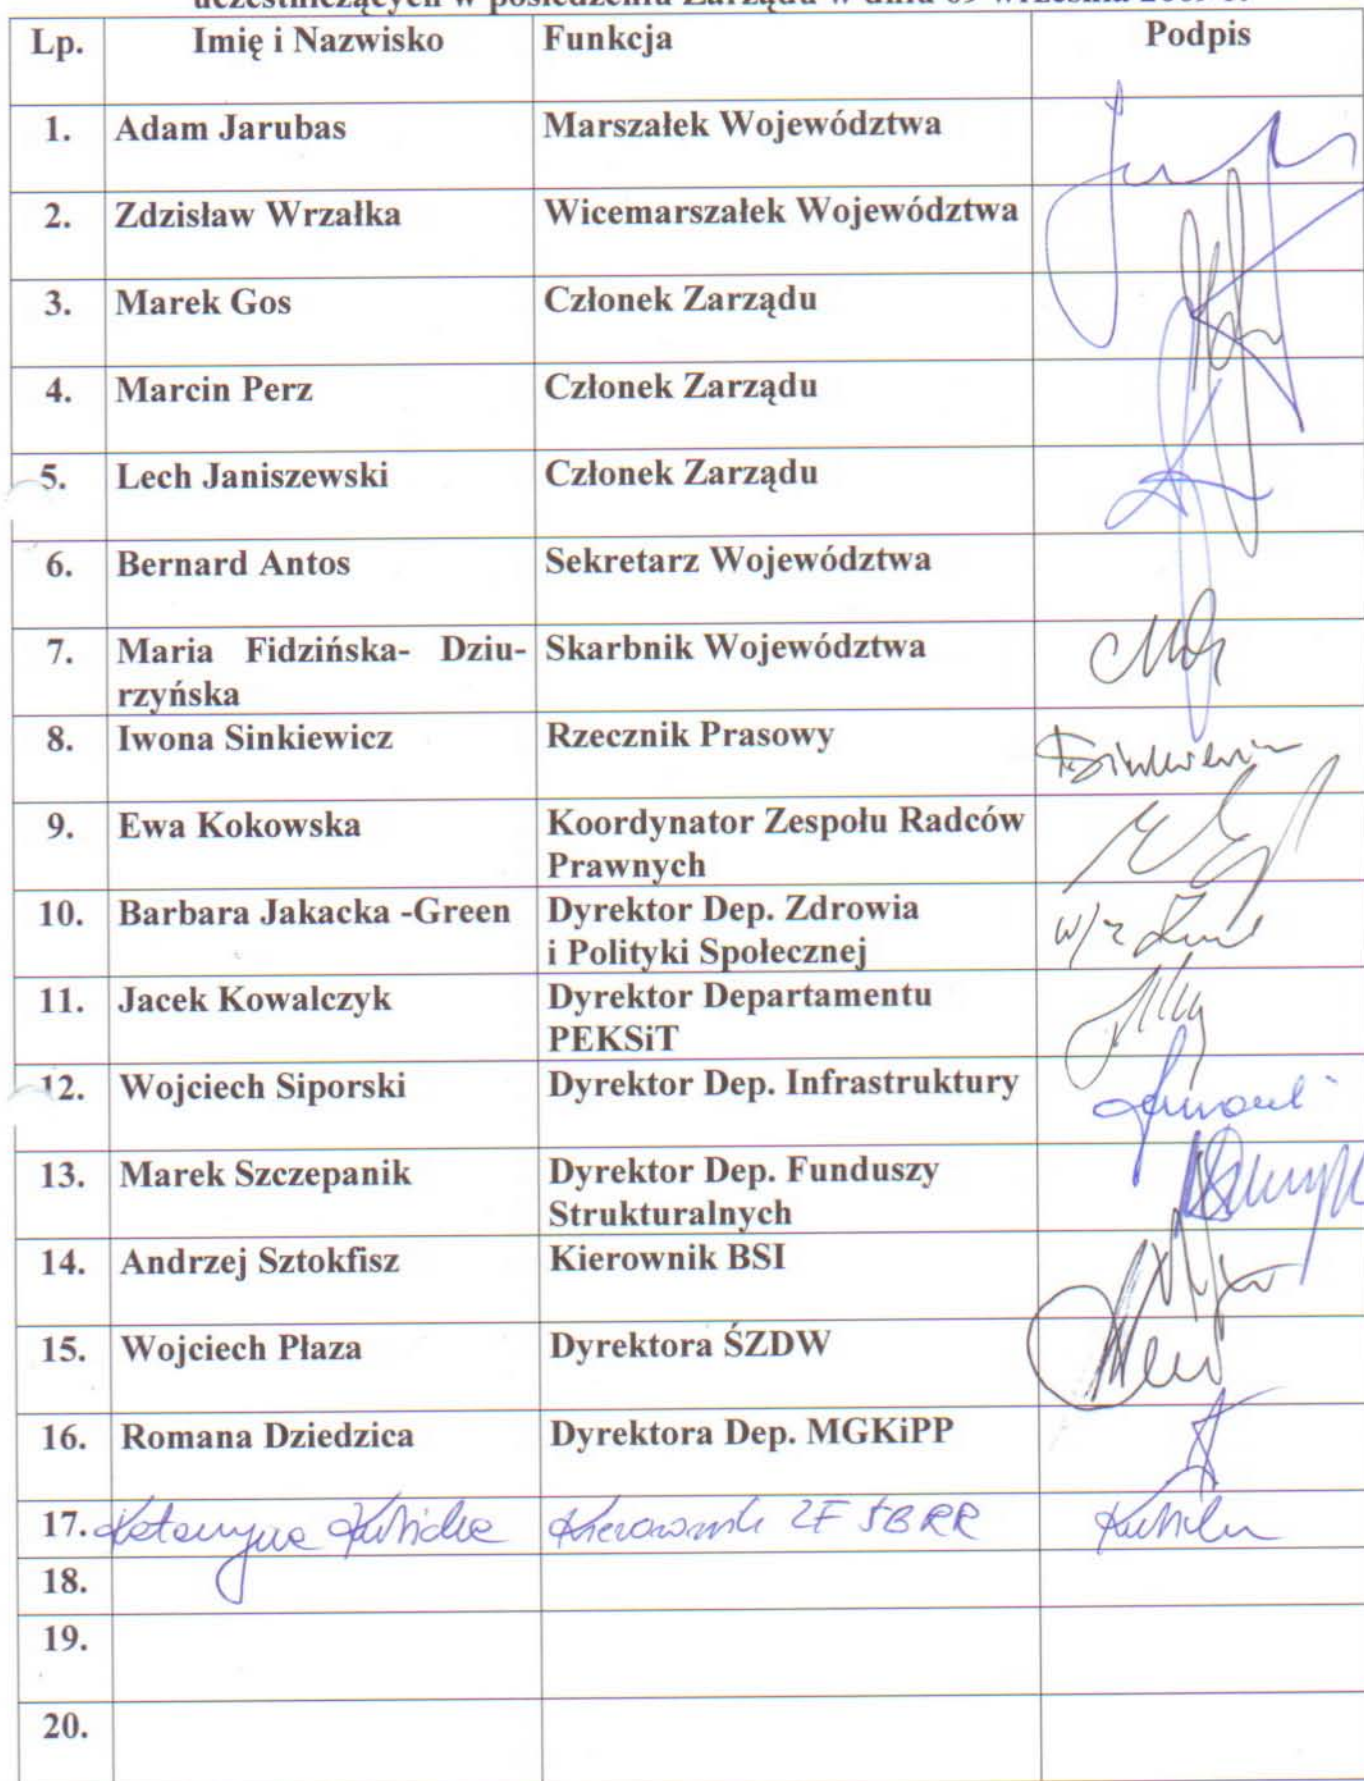 uczestniczących w posiedzeniu Zarządu w dniu 09 września 2009 r.
Lp. Imię i Nazwisko Funkcja Podpis
1. Adam Jarubas Marszałek Województwa
2. Zdzisław Wrzałka Wicemarszałek Województwa
3. Marek Gos Członek Zarządu
4. Marcin Perz Członek Zarządu
5. Lech Janiszewski Członek Zarządu
6. Bernard Antos Sekretarz Województwa
7. Maria Fidzińska- Dziu- Skarbnik Województwa
rzyńska
8. Iwona Sinkiewicz Rzecznik Prasowy
9. Ewa Kokowska Koordynator Zespołu Radców
Prawnych
10. Barbara Jakacka -Green Dyrektor Dep. Zdrowia w/z
i Polityki Społecznej
11. Jacek Kowalczyk Dyrektor Departamentu
PEKSiT
12. Wojciech Siporski Dyrektor Dep. Infrastruktury
13. Marek Szczepanik Dyrektor Dep. Funduszy
Strukturalnych
14. Andrzej Sztokfisz Kierownik BSI
15. Wojciech Płaza Dyrektora ŚZDW
16. Romana Dziedzica Dyrektora Dep. MGKiPP
17. Katarzyna Kubicka Kierownik ZF ŚBRR
18.
19.
20.